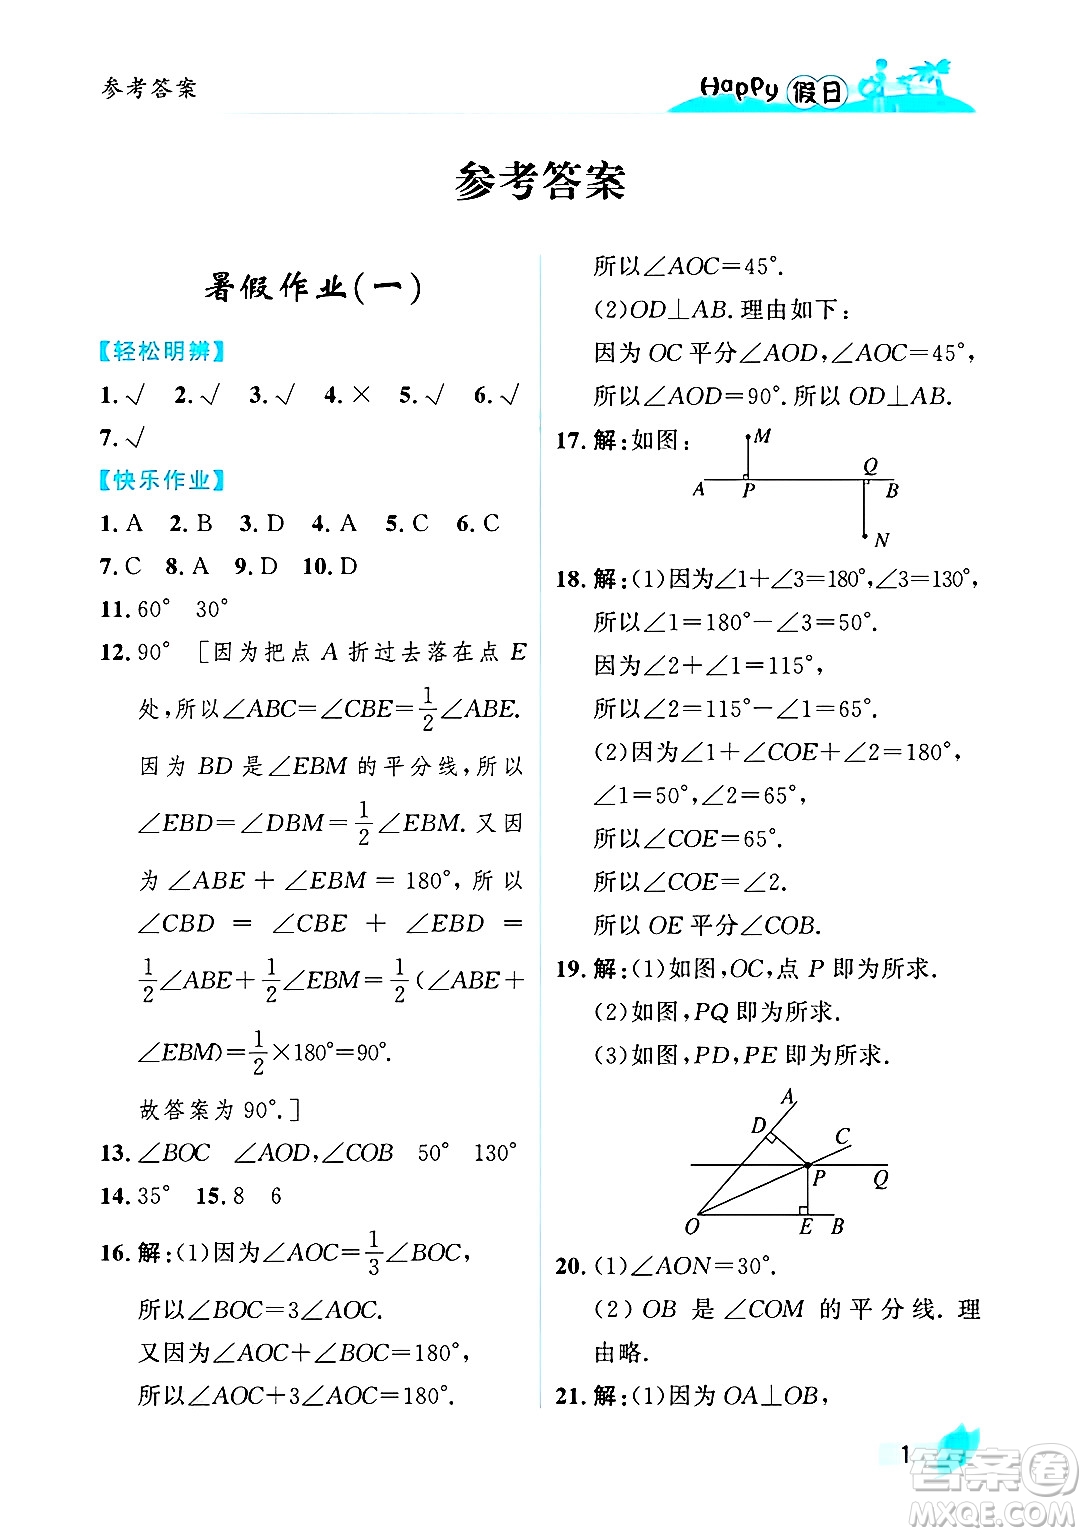 参考答案
Happy 假日
参考答案
暑假作业(一)
【轻松明辨】
1.√ 2.√ 3.√ 4.× 5.√ 6.√
7.√
【快乐作业】
1. A 2. B 3. D 4. A 5. C 6. C
7. C 8. A 9. D 10. D
11. 60° 30°
12. 90° [因为把点 A 折过去落在点 E
处,所以∠ABC=∠CBE=1/2∠ABE.
因为 BD 是∠EBM 的平分线,所以
∠EBD=∠DBM=1/2∠EBM. 又因
为∠ABE+∠EBM=180°,所以
∠CBD = ∠CBE + ∠EBD =
1/2∠ABE+1/2∠EBM=1/2(∠ABE+
∠EBM)=1/2×180°=90°.
故答案为 90°.]
13. ∠BOC ∠AOD,∠COB 50° 130°
14. 35° 15. 8 6
16. 解:(1)因为∠AOC=1/3∠BOC,
所以∠BOC=3∠AOC.
又因为∠AOC+∠BOC=180°,
所以∠AOC+3∠AOC=180°.
所以∠AOC=45°.
(2)OD⊥AB.理由如下:
因为 OC 平分∠AOD,∠AOC=45°,
所以∠AOD=90°.所以 OD⊥AB.
17. 解:如图:
M
Q
A P B
N
18. 解:(1)因为∠1+∠3=180°,∠3=130°,
所以∠1=180°-∠3=50°.
因为∠2+∠1=115°,
所以∠2=115°-∠1=65°.
(2)因为∠1+∠COE+∠2=180°,
∠1=50°,∠2=65°,
所以∠COE=65°.
所以∠COE=∠2.
所以 OE 平分∠COB.
19. 解:(1)如图,OC,点 P 即为所求.
(2)如图,PQ 即为所求.
(3)如图,PD,PE 即为所求.
A
D C
P Q
O E B
20. (1)∠AON=30°.
(2) OB 是∠COM 的平分线.理
由略.
21. 解:(1)因为 OA⊥OB,
1
答案圈
MXQE.COM